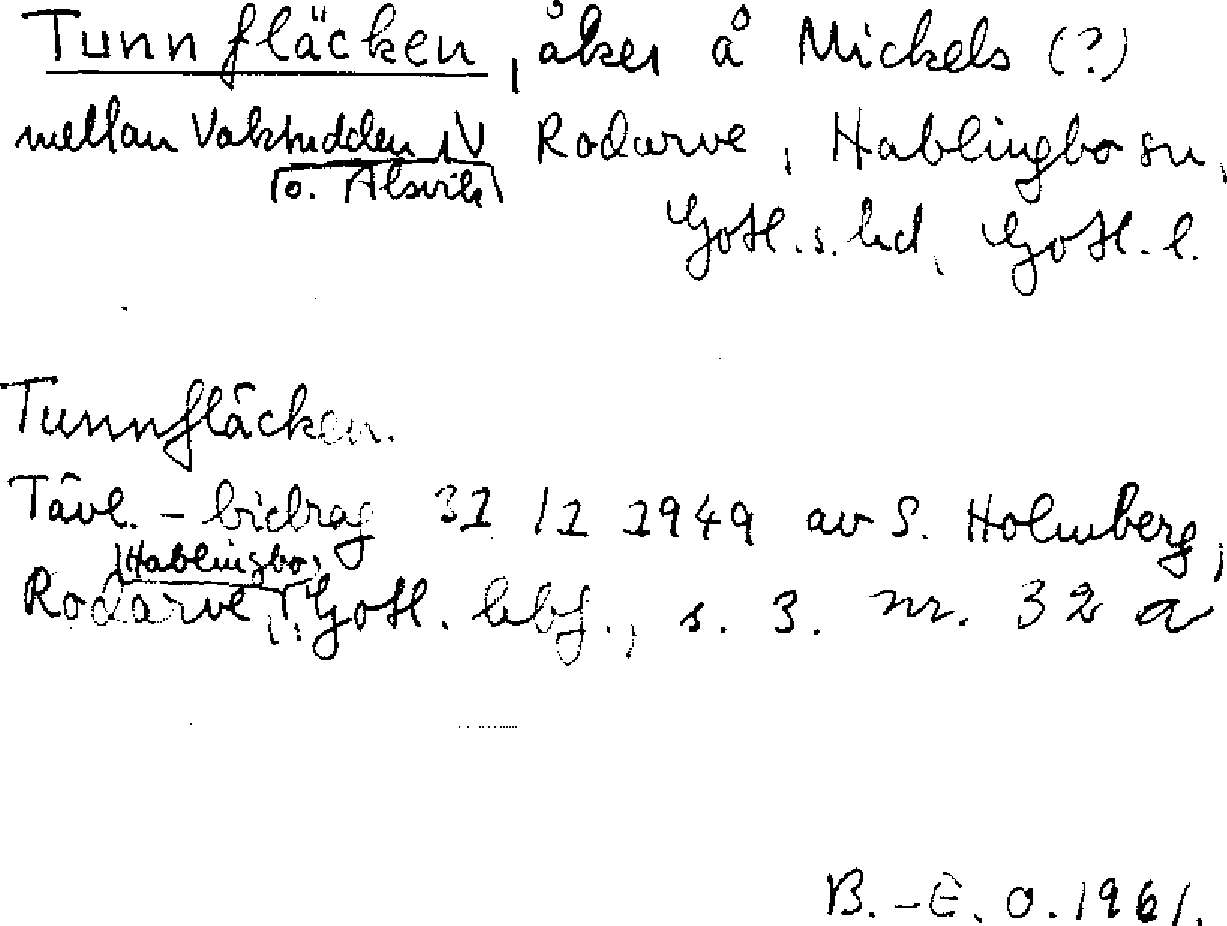 Tunnfläcken, åker å Mickels (?)
mellan Vaktudden i V Rodarve, Hablingbo sn,
o. Alsvik
Gotl. s. hd, Gotl. l.
Tunnfläcken.
Tävl.-bidrag 31/1 1949 av S. Holmberg,
Hablingbo,
Rodarve, Gotl. hbf., s. 3. nr. 32 a
B.-E. O. 1961.